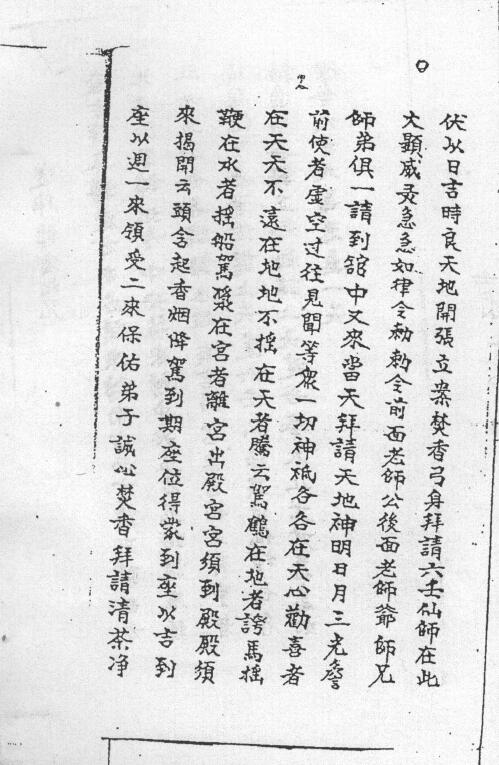 伏以日吉時良天地開張立案焚香弓身拜請六壬仙師在此
大顯威灵急急如律令勅勅令前面老師公後面老師爺師兄
師弟俱一請到舘中又來當天拜請天地神明日月三光詹
前使者虚空过往見聞等衆一切神祇各各在天心勸喜者
在天天不遠在地地不摇在天者騰云駕鶴在地者誇馬摇
鞭在水者摇船駕漿在宫者離宫出殿宫宫須到殿殿須
來揭開云頭含起香烟降駕到期座位得衆到座以吉到
座以週一來領受二來保佑弟子誠心焚香拜請清茶净